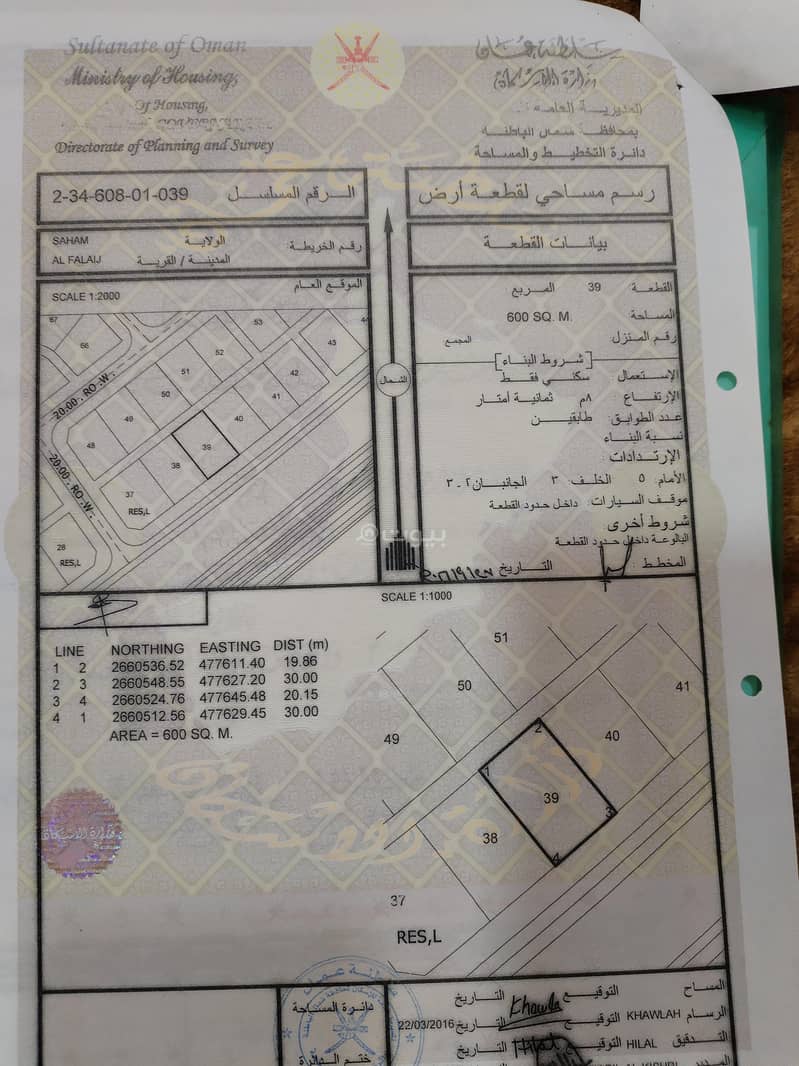 Sultanate of Oman
سلطنة عمان
Ministry of Housing,
وزارة الإسكان
Of Housing,
المديرية العامة
بمحافظة شمال الباطنة
Directorate of Planning and Survey
دائرة التخطيط والمساحة
رسم مساحي لقطعة أرض
الرقم المسلسل 2-34-608-01-039
بيانات القطعة
رقم الخريطة: الولاية SAHAM
المدينة / القرية AL FALAIJ
الموقع العام
SCALE 1:2000
القطعة 39 المربع
المساحة 600 SQ. M.
رقم المنزل المجمع
[شروط البناء]
الإستعمال سكني فقط
الإرتفاع ٨م ثمانية أمتار
عدد الطوابق: طابقين
نسبة البناء
الإرتدادات:
الأمام: ٥ الخلف: ٣ الجانبان ٢ - ٣
موقف السيارات: داخل حدود القطعة
شروط أخرى
البالوعة داخل حدود القطعة
المخطط: التاريخ
67
66
53
44
52
43
51
42
50
41
49
40
48
39
38
37
RES,L
28
RES,L
20:00. RO.W.
20:00. RO.W.
الشمال
بيوت
SCALE 1:1000
LINE NORTHING EASTING DIST (m)
1 2 2660536.52 477611.40 19.86
2 3 2660548.55 477627.20 30.00
3 4 2660524.76 477645.48 20.15
4 1 2660512.56 477629.45 30.00
AREA = 600 SQ. M.
51
50
41
49
40
2
1
39
3
38
4
37
RES,L
وزارة الإسكان
المساح التوقيع التاريخ
الرسام KHAWLAH التوقيع Khawla التاريخ 22/03/2016
التدقيق HILAL التوقيع Hilal التاريخ
دائرة المساحة
ختم الدائرة